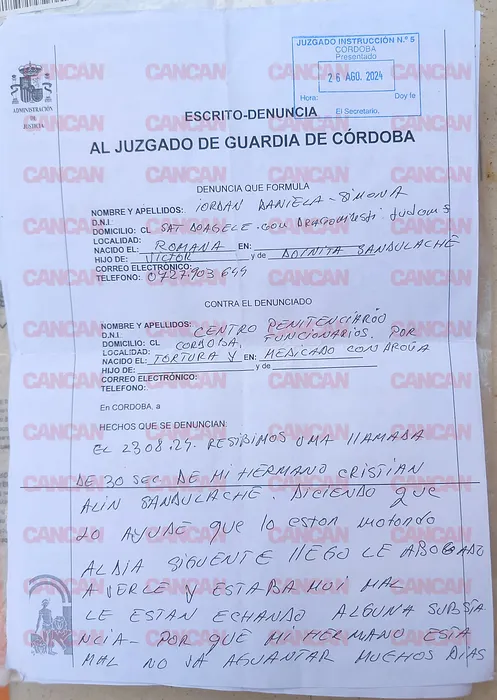 JUZGADO INSTRUCCIÓN N.º 5
CÓRDOBA
Presentado
26 AGO. 2024
Hora: Doy fe
El Secretario,
CANCAN
ADMINISTRACIÓN
DE
JUSTICIA
ESCRITO-DENUNCIA
AL JUZGADO DE GUARDIA DE CÓRDOBA
DENUNCIA QUE FORMULA
NOMBRE Y APELLIDOS: IORDAN DANIELA-SIMONA
D.N.I.
DOMICILIO: CL SAT
LOCALIDAD:
NACIDO EL: ROMANA EN:
HIJO DE: VICTOR y de DOINITA SANDULACHE
CORREO ELECTRÓNICO:
TELEFONO: 0727.903 644
CONTRA EL DENUNCIADO
NOMBRE Y APELLIDOS: CENTRO PENITENCIARIO
D.N.I.
DOMICILIO: CL CORDOBA, FUNCIONARIOS. POR
LOCALIDAD:
NACIDO EL: TORTURA Y EN: MEDICADO CON DROGA
HIJO DE: y de
CORREO ELECTRÓNICO:
TELEFONO:
En CORDOBA, a
HECHOS QUE SE DENUNCIAN:
EL 23 08.24. RESIBIMOS UMA llAMADA
DE 30 SEC DE MI HERMANO CRISTIAN
ALIN SANDULACHE. DICIENDO QUE
LO AYUDE QUE lo eston motondo
AL DIA SIGUENTE llEGO LE ABOGADO
A VERLE Y ESTABA MUI MAL
LE ESTAN ECHANDO ALGUNA SUBSTA
NCIA- POR QUE MI HERMANO ESTA
MAL NO VA AGUANTAR MUCHOS DIAS